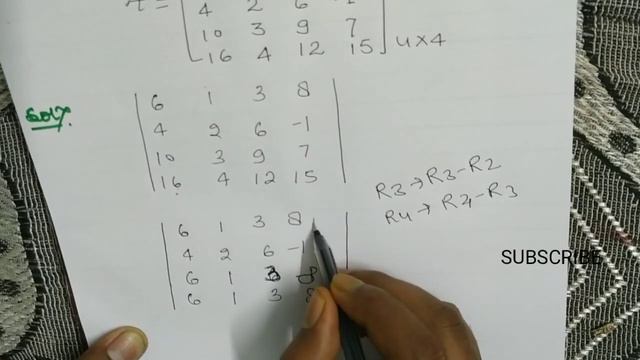 A = 4 2 6 -1
10 3 9 7
16 4 12 15 4×4
Soln
6 1 3 8
4 2 6 -1
10 3 9 7
16 4 12 15
R3→R3-R2
R4→R4-R3
6 1 3 8
4 2 6 -1
6 1 3 8
6 1 3 8
SUBSCRIBE